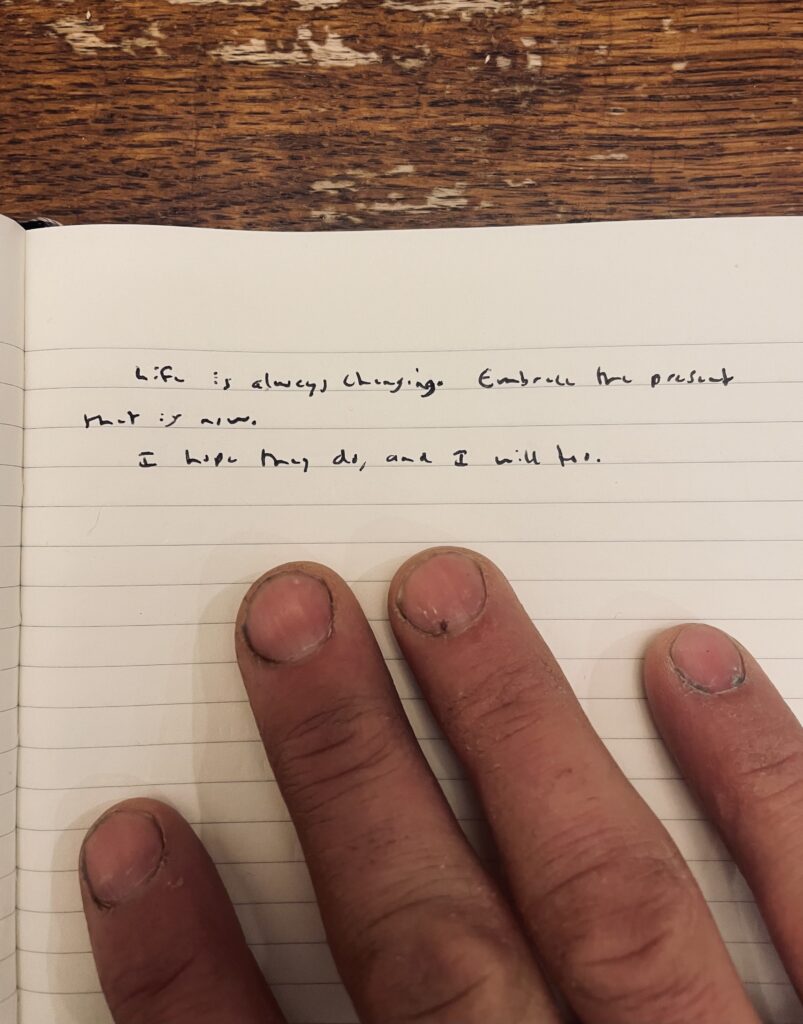 Life is always changing. Embrace the present
that is now.
I hope they do, and I will too.